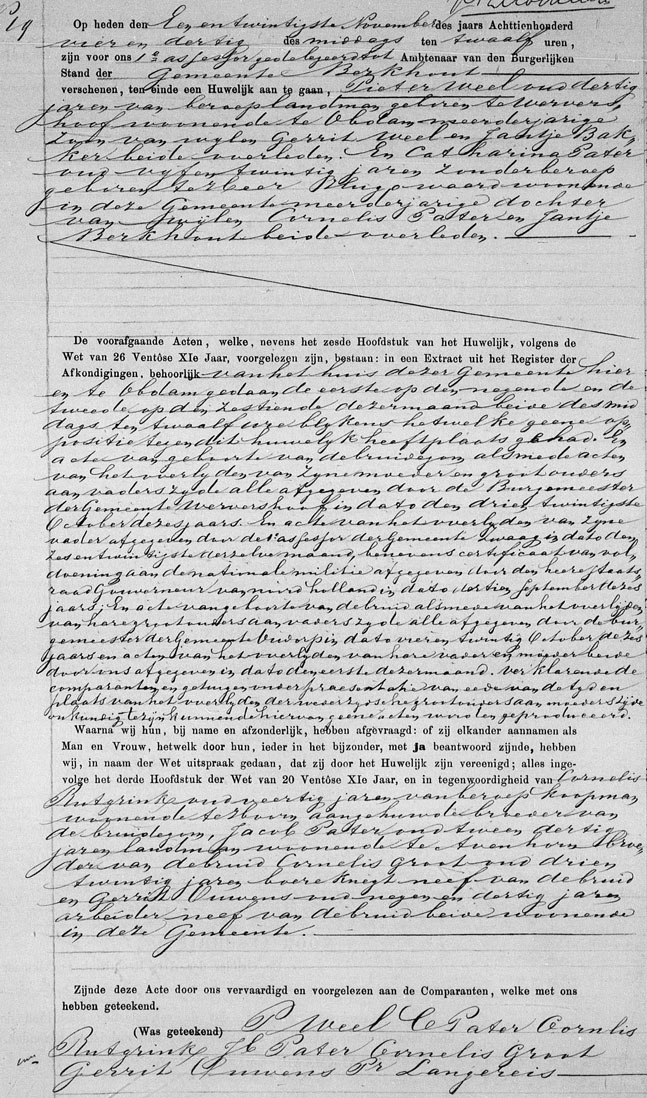 19
Op heden den Een en twintigste November des jaars Achttienhonderd
vier en dertig des middags ten twaalf uren,
zijn voor ons 1e assessor gedelegeerd tot Ambtenaar van den Burgerlijken
Stand der Gemeente Berkhout
verschenen, ten einde een Huwelijk aan te gaan, Pieter Weel oud dertig
jaren van beroep landman geboren te Wervers
hoof woonende te Obdam meerderjarige
zoon van wylen Gerrit Weel en Jantje Bak,,
ker beide overleden. En Catharina Pater
oud vyf en twintig jaren zonder beroep
geboren te Heer Hugowaard woonende
in deze Gemeente meerderjarige dochter
van wylen Cornelis Pater en Jantje
Berkhout beide overleden.
De voorafgaande Acten, welke, nevens het zesde Hoofdstuk van het Huwelijk, volgens de
Wet van 26 Ventôse XIe Jaar, voorgelezen zijn, bestaan: in een Extract uit het Register der
Afkondigingen, behoorlijk van het huis dezer Gemeente hier
en te Obdam gedaan de eerste op den negende en de
tweede op den zestiende dezer maand beide des mid
dags ten twaalf ure blykens hetwelke geene op,,
positie tegen dit huwelijk heeft plaats gehad. En
acte van geboorte van de bruidegom alsmede acten
van het overlyden van zyne moeder en grootouders
aan vaders zyde alle afgegeven door de Burgemeester
der Gemeente Wervershoof in dato den drie en twintigste
October dezes jaars. En acte van het overlyden van zyne
vader afgegeven door de 1e assessor der Gemeente Zwaag in dato den
zes en twintigste derzelve maand, benevens certificaat van vol,,
doening aan de nationale militie afgegeven door den heere staats,,
raad Gouverneur van noord holland in dato dertien September dezes
jaars; En acte van geboorte van de bruid alsmede van het overlijden
van hare grootouders aan vaders zyde alle afgegeven door de bur,,
gemeester der Gemeente Oudorp in dato vier en twintig October dezes
jaars en acten van het overlyden van hare vader en moeder beide
door ons afgegeven in dato den eerste dezer maand. verklarende de
comparanten en getuigen onder praesentatie van eede van de tyd en
plaats van het overlyden der wederzydsche grootouders aan moeders zyde
onkundig te zijn kunnende hiervan geene acten worden geproduceerd.
Waarna wij hun, bij name en afzonderlijk, hebben afgevraagd: of zij elkander aannamen als
Man en Vrouw, hetwelk door hun, ieder in het bijzonder, met ja beantwoord zijnde, hebben
wij, in naam der Wet uitspraak gedaan, dat zij door het Huwelijk zijn vereenigd; alles inge-
volge het derde Hoofdstuk der Wet van 20 Ventôse XIe Jaar, en in tegenwoordigheid van Cornelis
Rutgrink oud veertig jaren van beroep koopman
woonende te Hoorn aangehuwde broeder van
de bruidegom, Jacob Pater oud twee en dertig
jaren landman woonende te Avenhorn broe
der van de bruid Cornelis Groot oud drie en
twintig jaren boereknegt neef van de bruid
en Gerrit Ouwens oud negen en dertig jaren
arbeider neef van de bruid beide woonende
in deze Gemeente.
Zijnde deze Acte door ons vervaardigd en voorgelezen aan de Comparanten, welke met ons
hebben geteekend.
(Was geteekend) P Weel C Pater Cornlis
Rutgrink J Pater Cornelis Groot
Gerrit Ouwens Pr Langereis